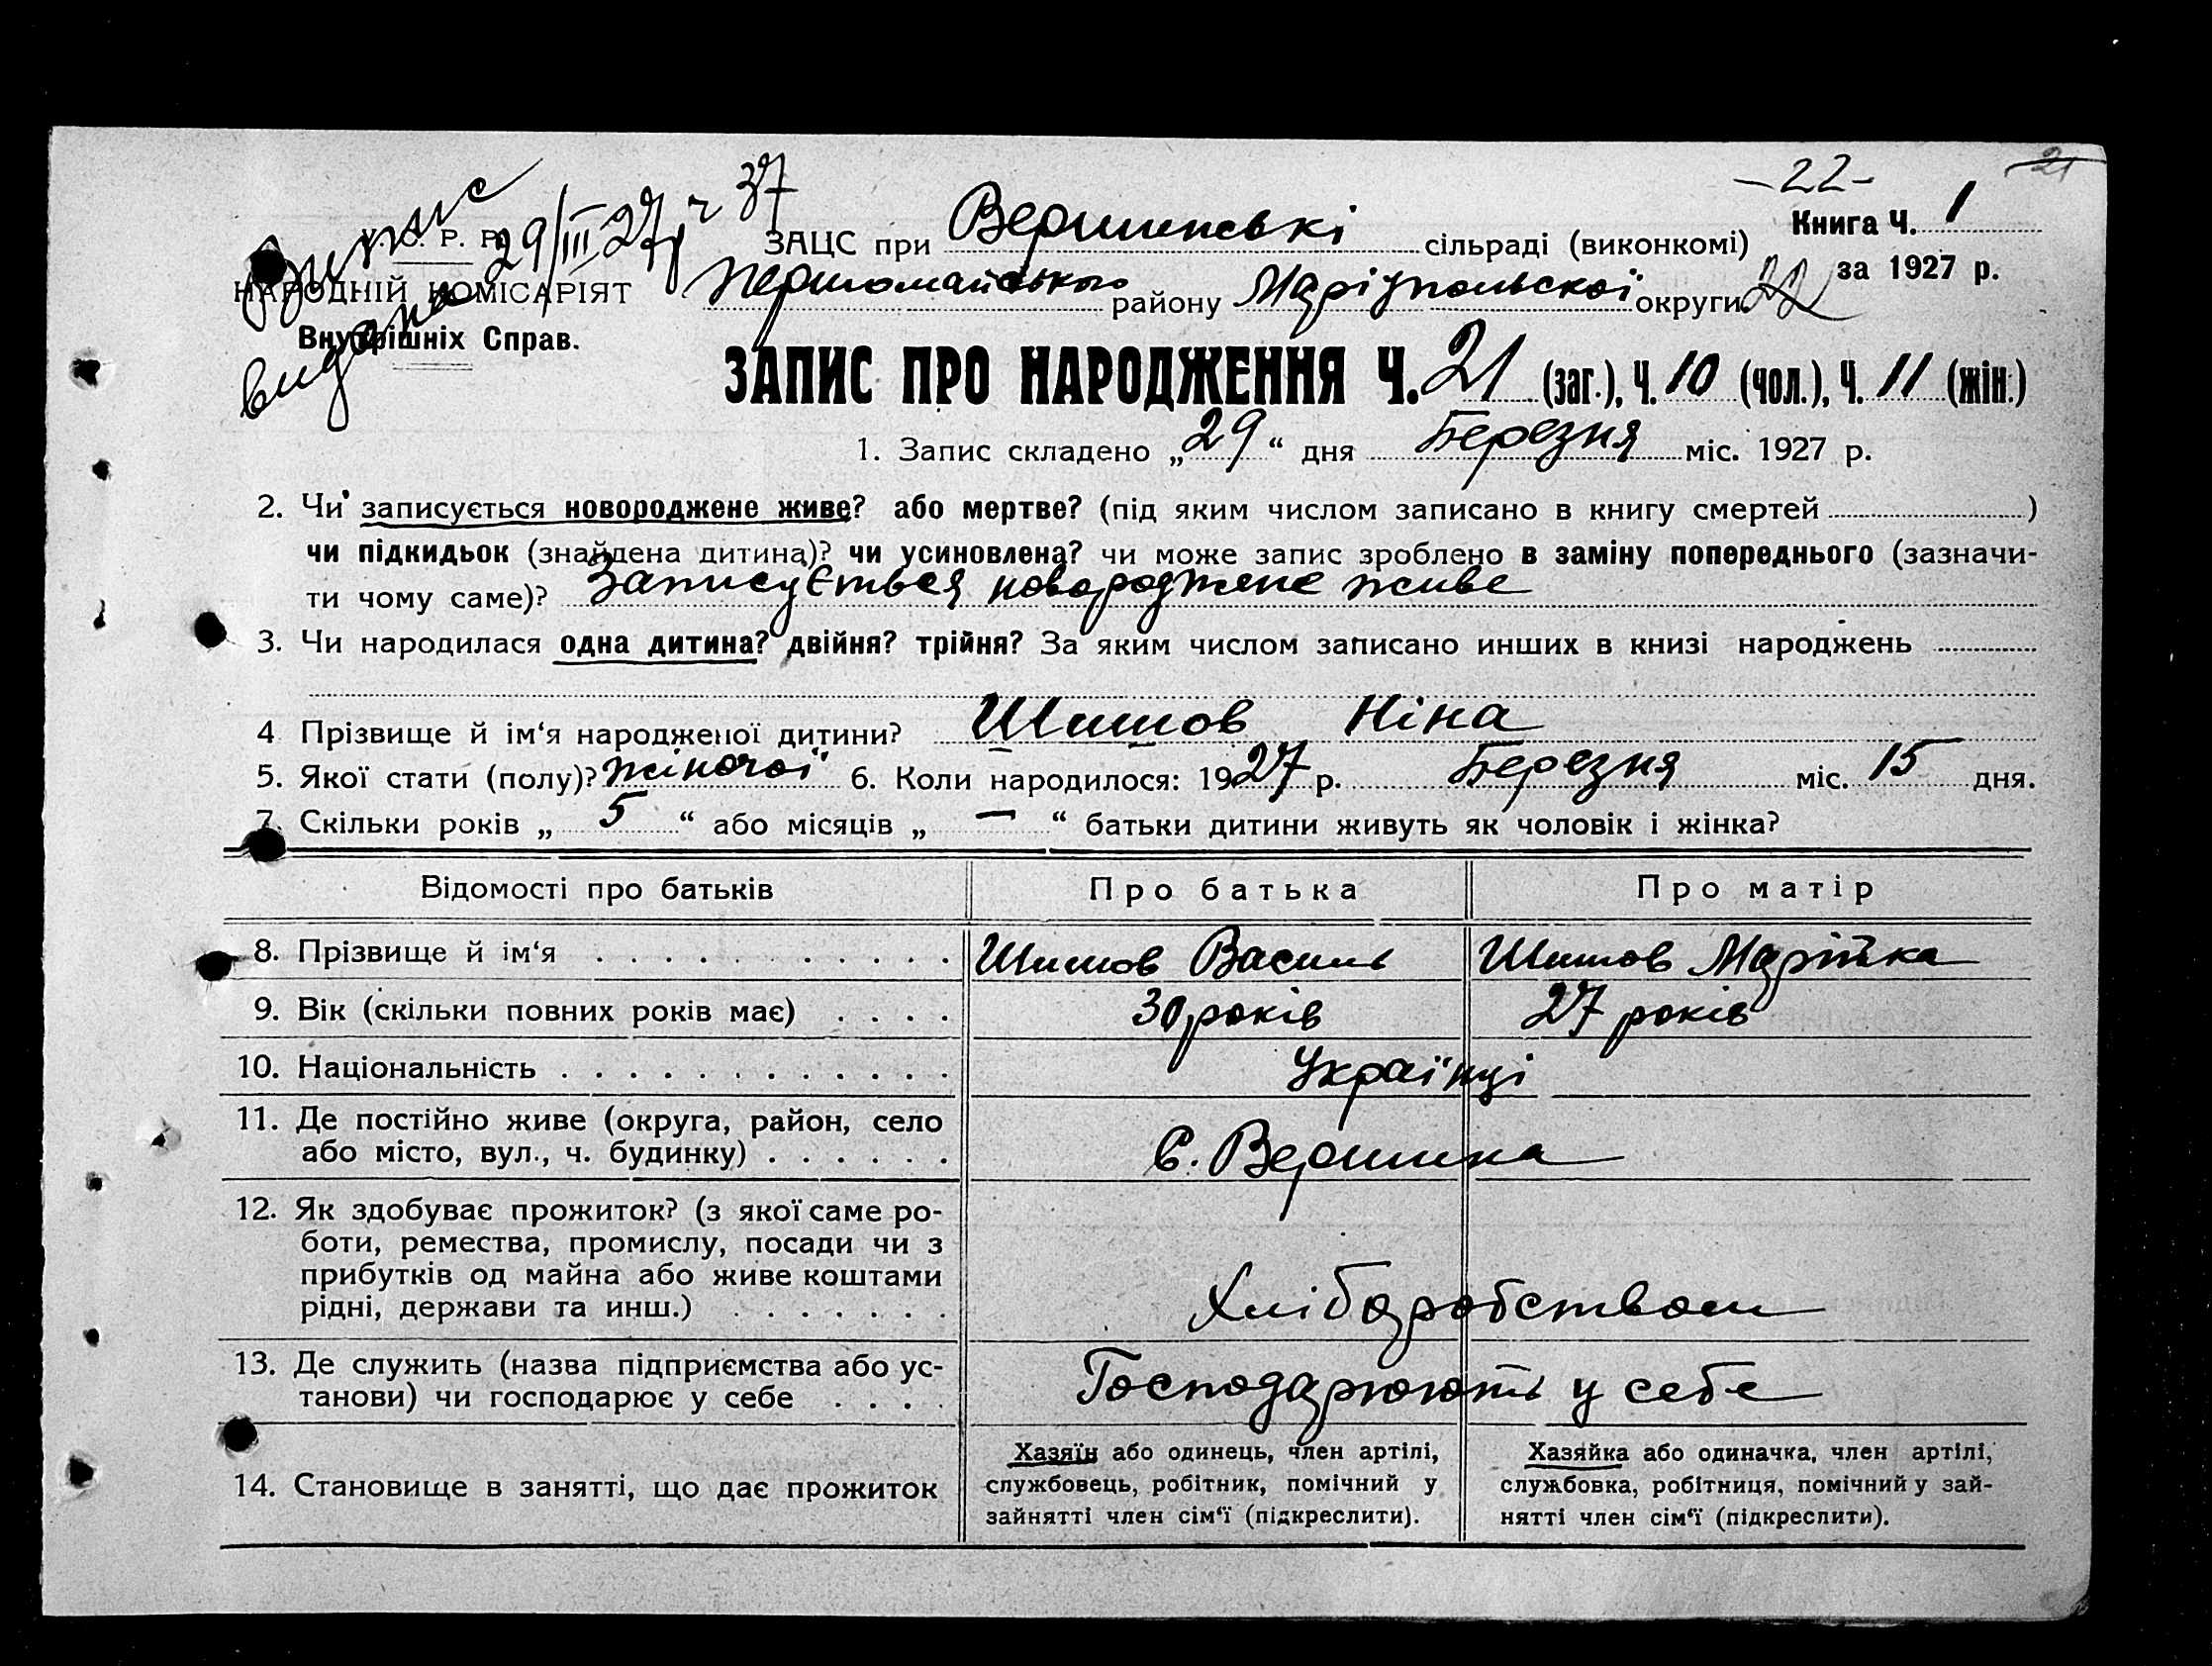 -22- 21
Випис
видано 29/III 27 р ч 37
У. С. Р. Р.
НАРОДНІЙ КОМІСАРІЯТ
Внутрішніх Справ.
ЗАЦС при Вершинські сільраді (виконкомі) Книга Ч. 1
Першомайського району Маріупольскої округи 22 за 1927 р.
ЗАПИС ПРО НАРОДЖЕННЯ Ч. 21 (заг.), Ч. 10 (чол.), Ч. 11 (жін.)
1. Запис складено „29“ дня Березня міс. 1927 р.
2. Чи записується новороджене живе? або мертве? (під яким числом записано в книгу смертей )
чи підкидьок (знайдена дитина)? чи усиновлена? чи може запис зроблено в заміну попереднього (зазначи-
ти чому саме)? Записується новороджене живе
3. Чи народилася одна дитина? двійня? трійня? За яким числом записано инших в книзі народжень
4 Прізвище й ім‘я народженої дитини? Шишов Ніна
5. Якої стати (полу)? жіночої 6. Коли народилося: 1927 р. Березня міс. 15 дня.
7. Скільки років „ 5 “ або місяців „ — “ батьки дитини живуть як чоловік і жінка?
Відомості про батьків Про батька Про матір
8. Прізвище й ім‘я . . . . . . . . . . . Шишов Василь Шишов Марійка
9. Вік (скільки повних років має) . . . . 30 років 27 років
10. Національність . . . . . . . . . . . . . Українці
11. Де постійно живе (округа, район, село
або місто, вул., ч. будинку) . . . . . . С. Вершина
12. Як здобуває прожиток? (з якої саме ро-
боти, ремества, промислу, посади чи з
прибутків од майна або живе коштами
рідні, держави та инш.) . . . . . . . Хліборобством
13. Де служить (назва підприємства або ус-
танови) чи господарює у себе . . . . Господарюють у себе
14. Становище в занятті, що дає прожиток
Хазяїн або одинець, член артілі,
службовець, робітник, помічний у
зайнятті член сім‘ї (підкреслити).
Хазяйка або одиначка, член артілі,
службовка, робітниця, помічний у зай-
нятті член сім‘ї (підкреслити).